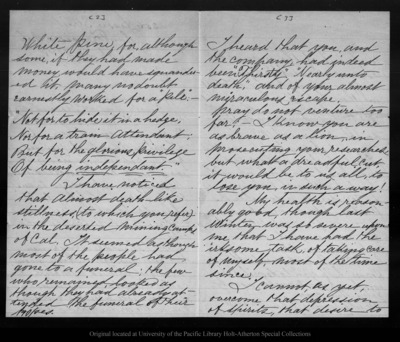 [2]
White Pine, for although
some, if they had made
money would have squander-
ed it, many no doubt
earnestly worked for a pile.-
"Not for to hide it in a hedge,
Nor for a train Attendant;
But for the glorious privilege
Of being independant."
I have noticed
that almost death-like
stillness (to which you refer)
in the deserted mining camps
of Cal. It seemed as though
most of the people had
gone to a funeral; the few
who remained looked as
though they had already at-
tended the funeral of their
hopes.
[3]
I heard that you, and
the company, had indeed
been "thirsty," "Nearly unto
death," and of your almost
miraculous escape.
Pray do not venture too
far! - I know you are
as brave as a lion, in
prosecuting your researches
but what a dreadful cut
it would be to us all, to
lose you in such a way!
My health is reason-
ably good, though last
Winter was so severe upon
me that I have had the
irksome task of taking care
of myself most of the time
since.
I cannot, as yet,
overcome that depression
of spirits, that desire to
Original located at University of the Pacific Library Holt-Atherton Special Collections